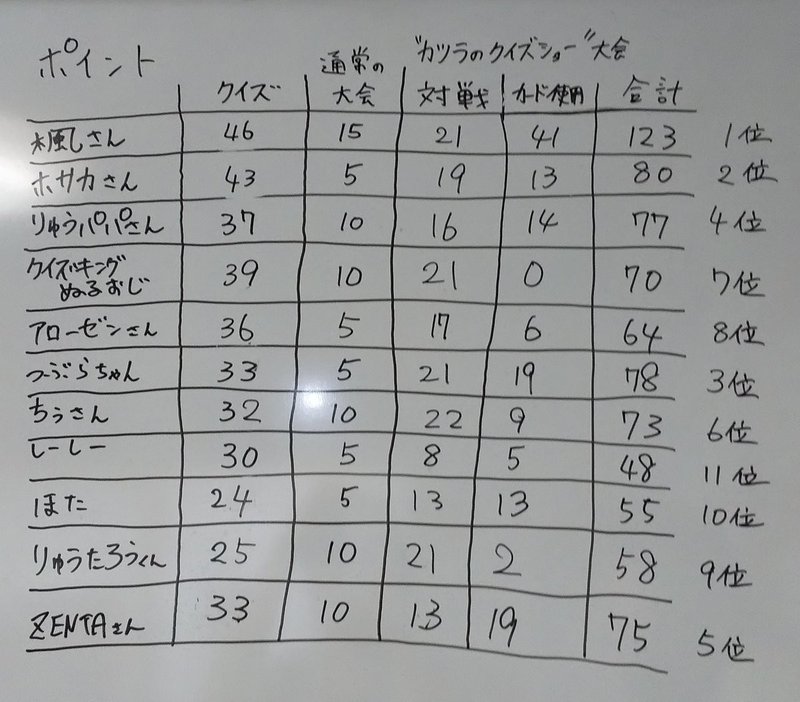 ポイント
"カツラのクイズショー"大会
クイズ 通常の大会 対戦 カード使用 合計
さん 46 15 21 41 123 1位
ホサカさん 43 5 19 13 80 2位
りゅうパパさん 37 10 16 14 77 4位
クイズキング
ぬるおじ 39 10 21 0 70 7位
アローゼンさん 36 5 17 6 64 8位
つぶらちゃん 33 5 21 19 78 3位
ちぅさん 32 10 22 9 73 6位
しーしー 30 5 8 5 48 11位
ほた 24 5 13 13 55 10位
りゅうたろうくん 25 10 21 2 58 9位
ZENTAさん 33 10 13 19 75 5位